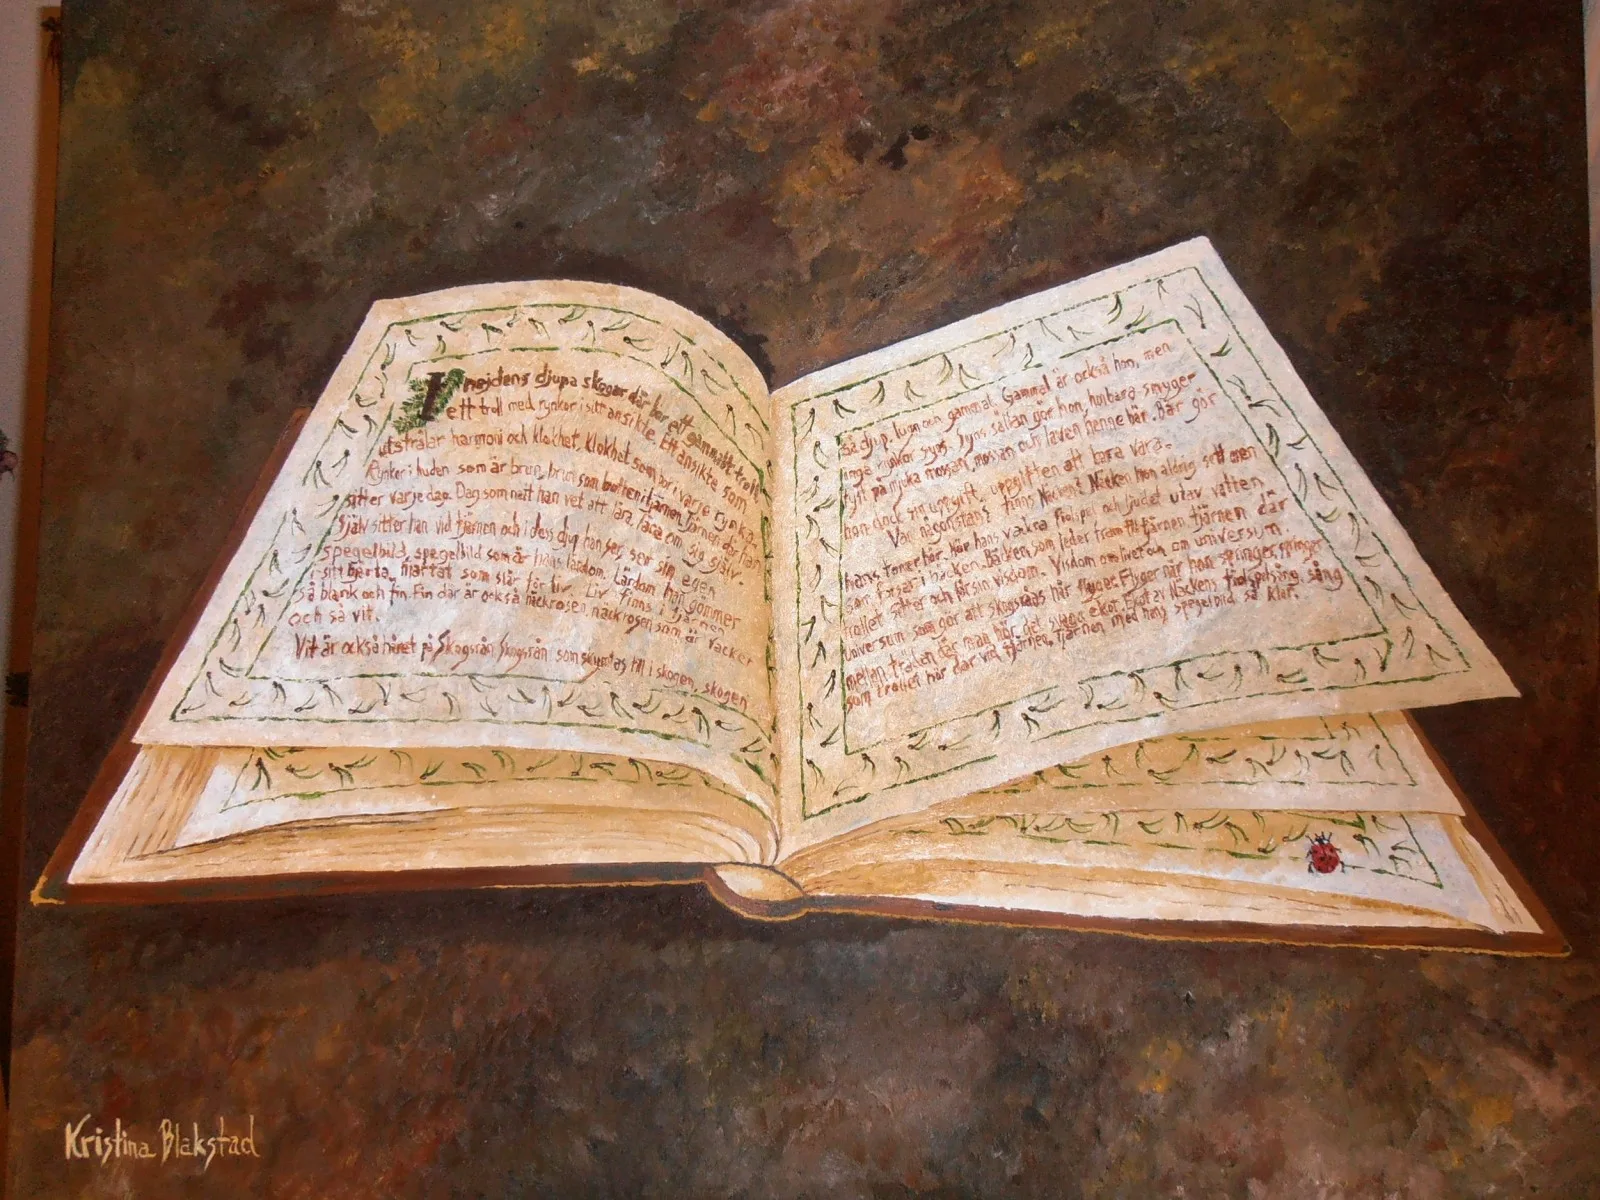 I nejdens djupa skogar där bor ett gammalt troll
ett troll med rynkor i sitt ansikte. Ett ansikte som
utstrålar harmoni och klokhet, klokhet som bor i varje rynka.
Rynker i huden som är brun, brun som bottnen i tjärnen, tjärnen där han
sitter varje dag. Dag som natt han vet att lära, lära om sig själv.
Själv sitter han vid tjärnen och i dess djup han ser, ser sin egen
spegelbild, spegelbild som är hans lärdom. Lärdom han gömmer
i sitt hjärta, hjärtat som slår för liv. Liv finns i tjärnen
så blank och fin. Fin där är också näckrosen, näckrosen som är vacker
och så vit.
Vit är också håret på Skogsrån, Skogsrån som skymtas till i skogen, skogen
så djup, lugn och gammal. Gammal är också hon, men
inga rynkor syns. Syns sällan gör hon, hon bara smyger
tyst på mjuka mossan, mossan och laven henne bär. Bär gör
hon dock sin uppgift, uppgiften att bara vara.
Var någonstans finns Näcken? Näcken hon aldrig sett men
hans toner hör. Hör hans vackra fiolspel och ljudet utav vatten
som forsar i bäcken. Bäcken som leder fram till tjärnen, tjärnen där
trollet sitter och för sin visdom. Visdom om livet och om universum.
Universum som gör att skogsråns hår flyger. Flyger när hon springer, springer
mellan träden där man hör det svaga ekot. Ekot av Näckens fiolspelsång, sång
som trollet hör där vid tjärnen, tjärnen med hans spegelbild så klar.
Kristina Blakstad